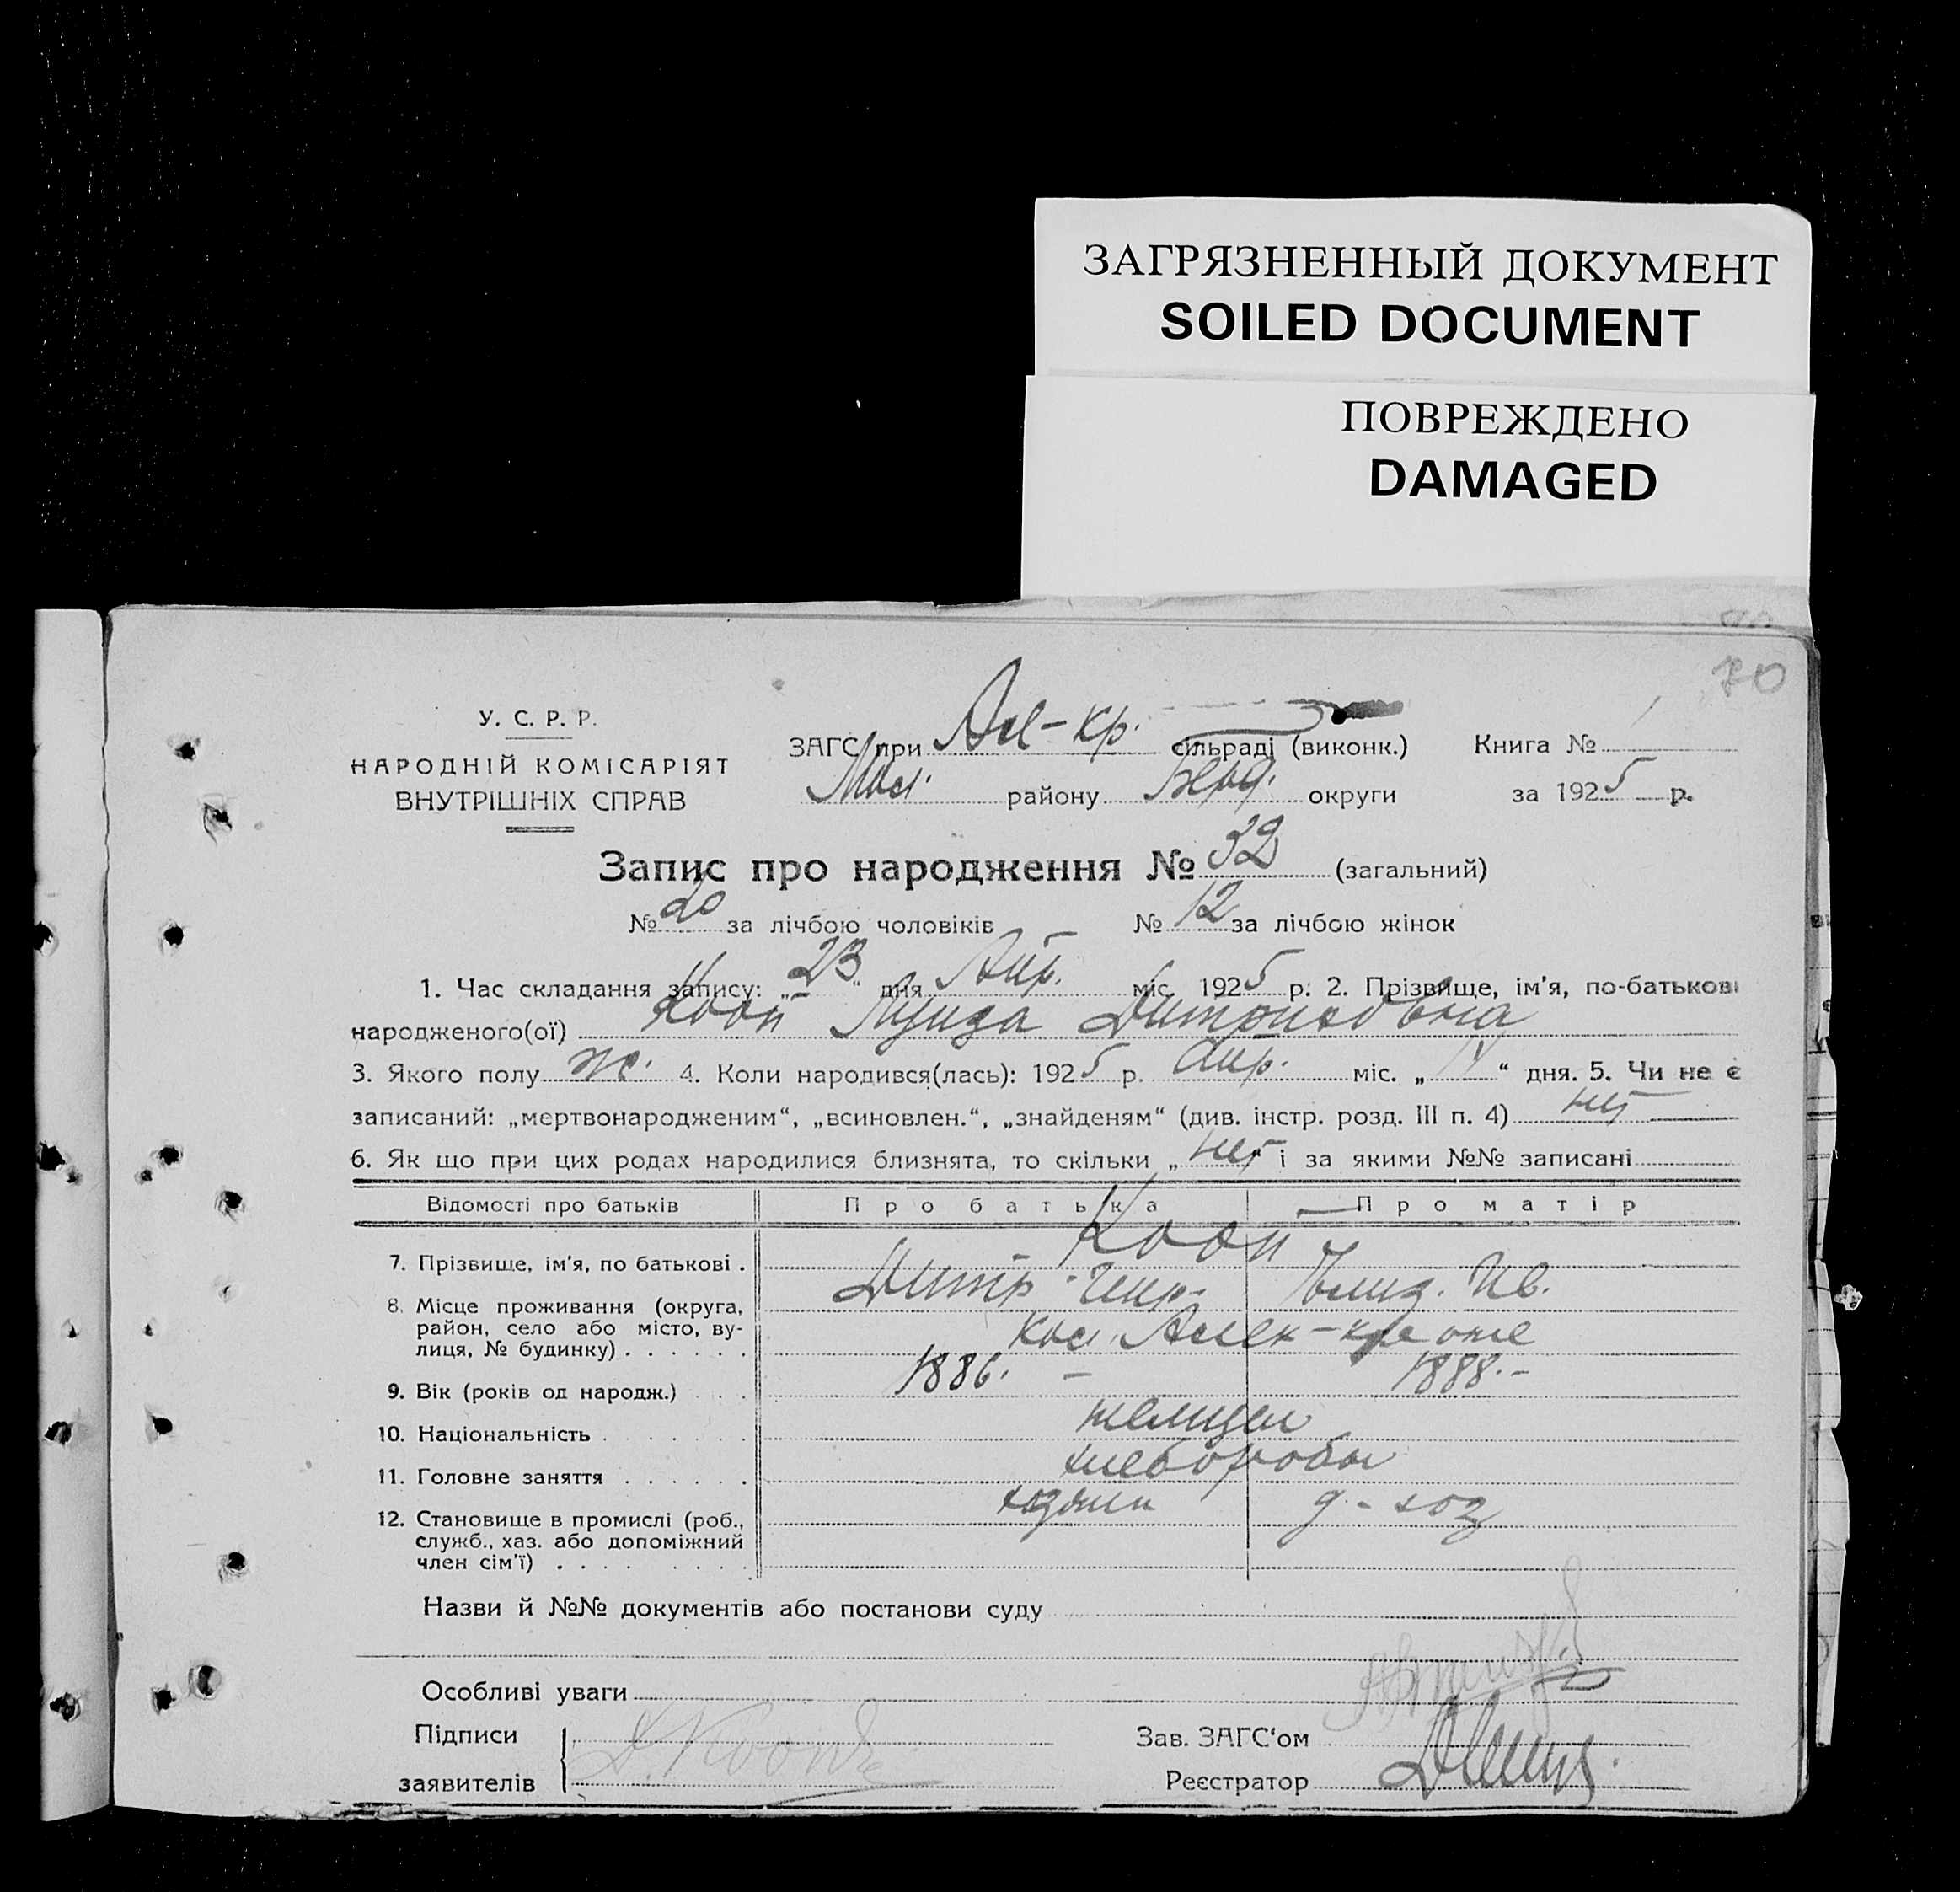 ЗАГРЯЗНЕННЫЙ ДОКУМЕНТ
SOILED DOCUMENT
ПОВРЕЖДЕНО
DAMAGED
70
У. С. Р. Р.
НАРОДНІЙ КОМІСАРІЯТ
ВНУТРІШНІХ СПРАВ
ЗАГС при Ал-кр. сільраді (виконк.) Книга №
Мол. району Берд. округи за 1925 р.
Запис про народження № 32 (загальний)
№ 20 за лічбою чоловіків № 12 за лічбою жінок
1. Час складання запису: „23“ дня Апр. міс. 1925 р. 2. Прізвище, ім'я, по-батькові
народженого(ої) Кооп Луиза Дитриховна
3. Якого полу ж. 4. Коли народився(лась): 1925 р. Апр. міс. „ “ дня. 5. Чи не є
записаний: „мертвонародженим“, „всиновлен.“, „знайденям“ (див. інстр. розд. III п. 4) нет
6. Як що при цих родах народилися близнята, то скільки „нет“ і за якими №№ записані
Відомості про батьків Про батька Про матір
Кооп
7. Прізвище, ім'я, по батькові . Дитр. Елиз. Ив.
8. Місце проживання (округа,
район, село або місто, ву-
лиця, № будинку) . . . . . .
9. Вік (років од народж.) . . . 1886. – 1888. –
10. Національність . . . . . . немцы
11. Головне заняття . . . . . . хлеборобы
12. Становище в промислі (роб., хозяин д-хоз
служб., хаз. або допоміжний
член сім'ї) . . . . . . . .
Назви й №№ документів або постанови суду
Особливі уваги
Підписи
заявителів
D. Koop
Зав. ЗАГС'ом
Реєстратор